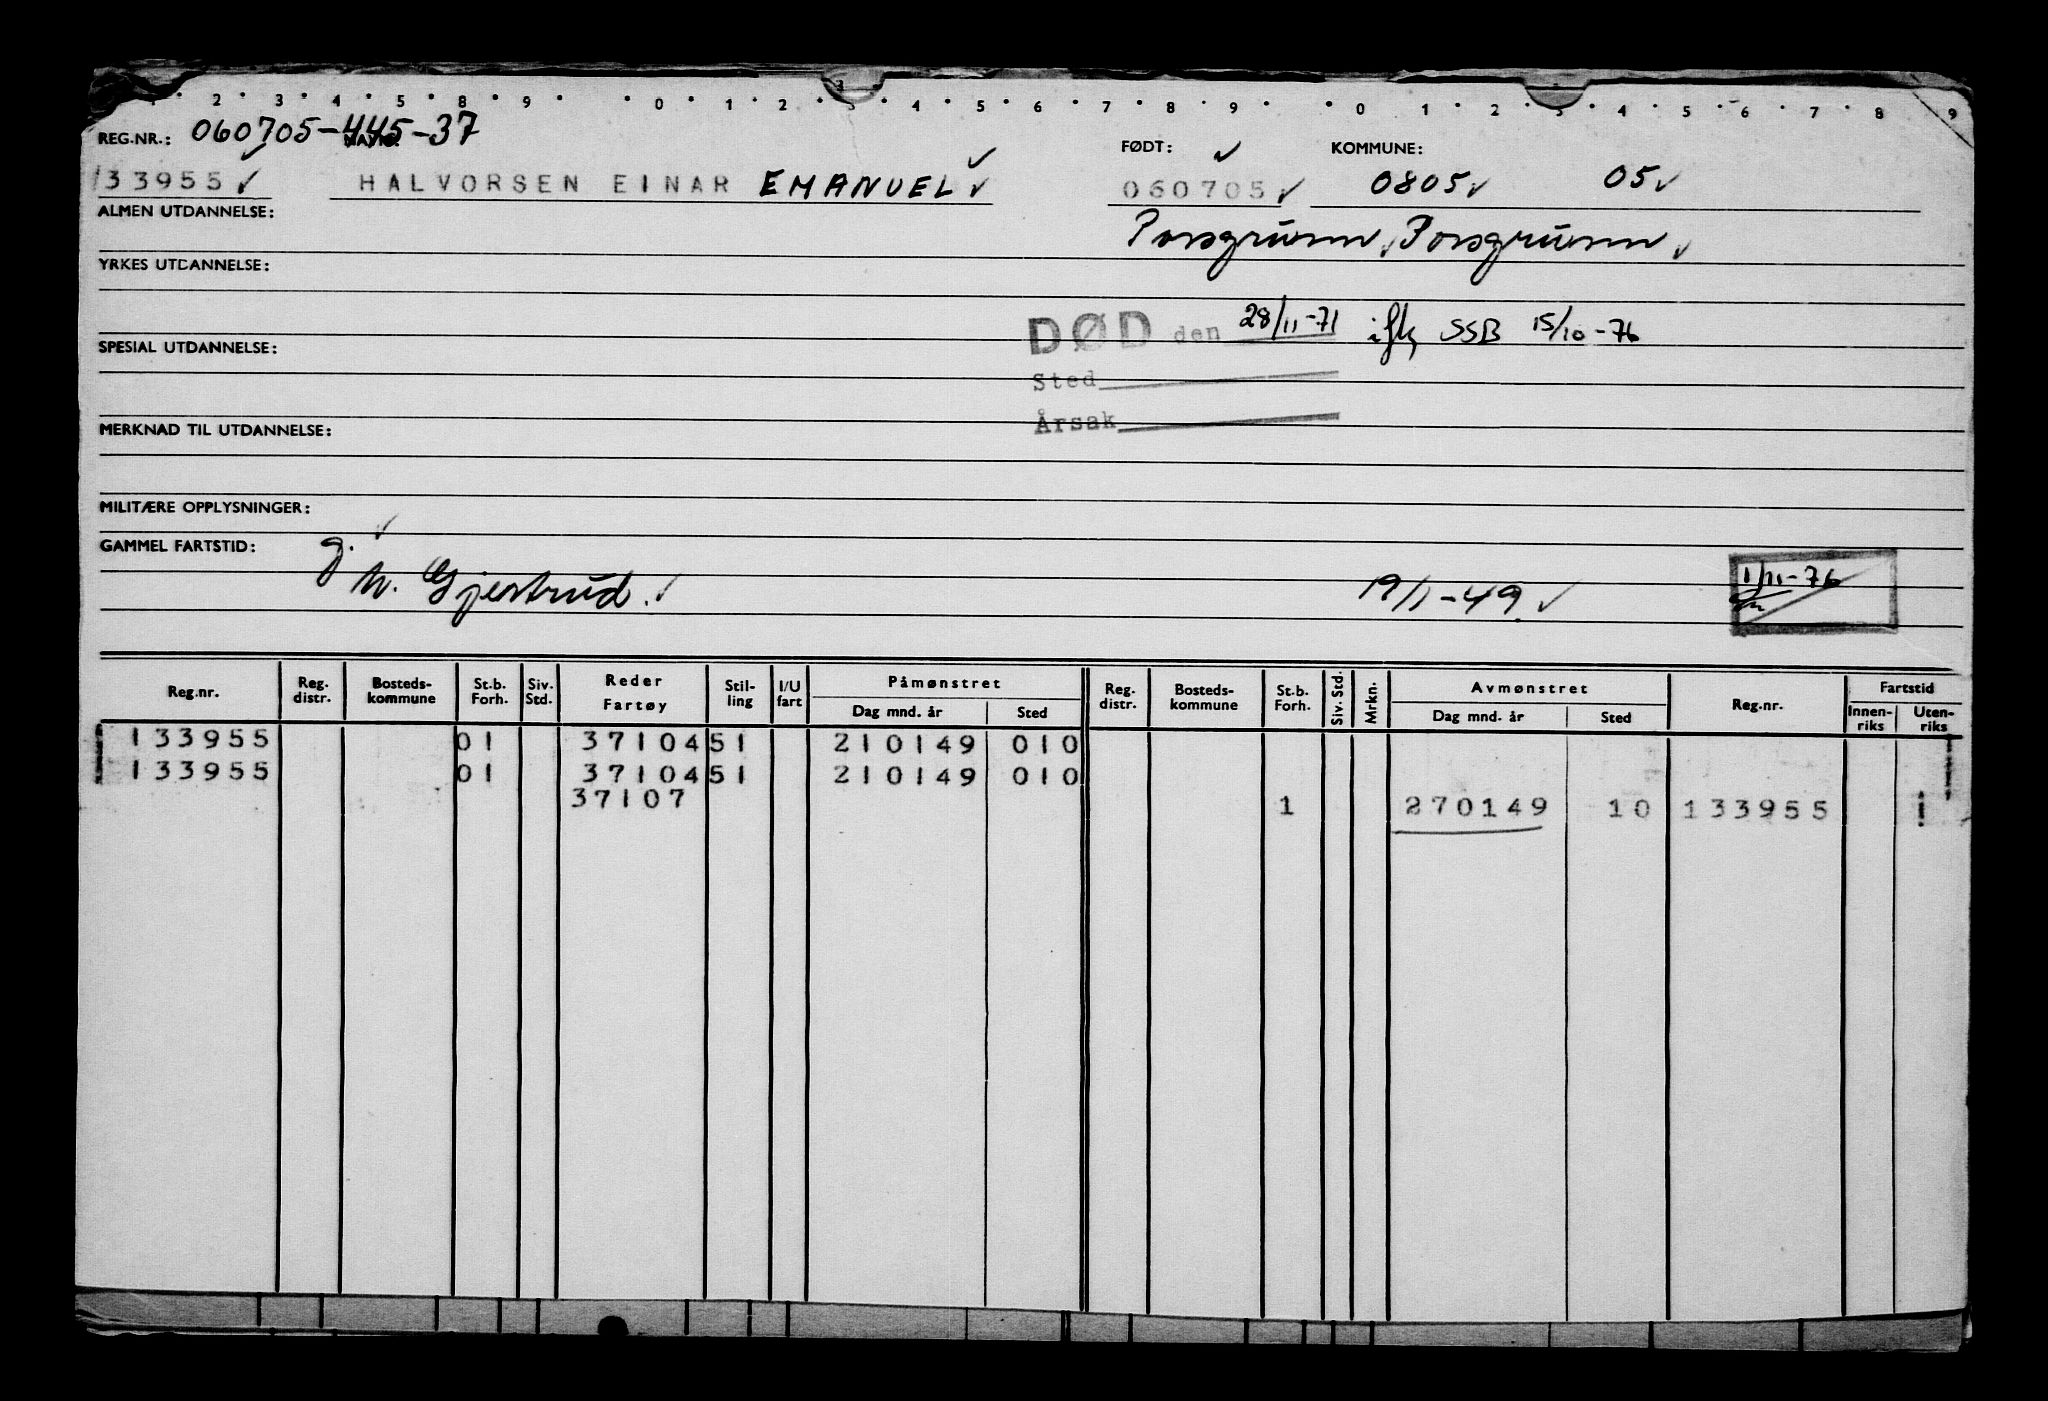 1 2 3 4 5 8 9 0 1 2 3 4 5 6 7 8 9 0 1 2 3 4 5 6 7 8 9
REG.NR.: 060705-445-37 NAVN: FØDT: KOMMUNE:
133955 HALVORSEN EINAR EMANUEL 060705 0805 05
ALMEN UTDANNELSE: Porsgrunn, Porsgrunn
YRKES UTDANNELSE:
DØD den 28/11-71 iflg SSB 15/10-76
SPESIAL UTDANNELSE:
Sted
Årsak
MERKNAD TIL UTDANNELSE:
MILITÆRE OPPLYSNINGER:
GAMMEL FARTSTID: g.
h. Gjertrud. 19/1-49 1/11-76
Reg.nr. Reg. distr. Bosteds-kommune St.b. Forh. Siv. Std. Reder Fartøy Stil-ling I/U fart Påmønstret Dag mnd. år Sted Reg. distr. Bosteds-kommune St.b. Forh. Siv. Std. Mrkn. Avmønstret Dag mnd. år Sted Reg.nr. Fartstid Innen-riks Uten-riks
133955 01 37104 51 210149 010
133955 01 37104 51 210149 010
37107 1 270149 10 133955